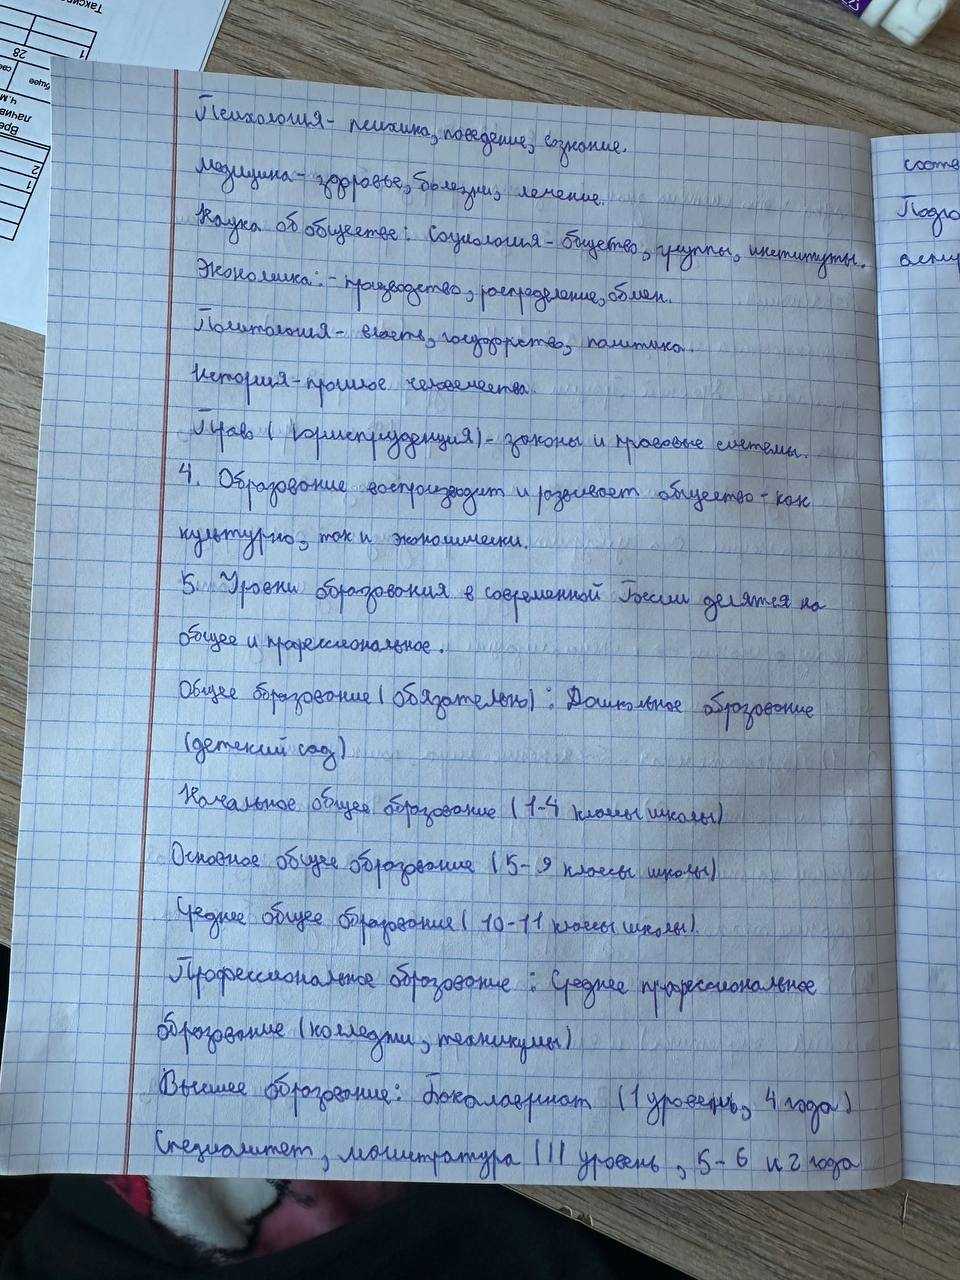 Психология - психика, поведение, сознание.
Медицина - здоровье, болезни, лечение.
Наука об обществе: Социология - общество, группы, институты.
Экономика: - производство, распределение, обмен.
Политология - власть, государство, политика.
История - прошлое человечества.
Право (юриспруденция) - законы и правовые системы.
4. Образование воспроизводит и развивает общество - как
культурно, так и экономически.
5. Уровни образования в современной России делятся на
общее и профессиональное.
Общее образование (обязательно): Дошкольное образование
(детский сад)
Начальное общее образование (1-4 классы школы)
Основное общее образование (5-9 классы школы)
Среднее общее образование (10-11 классы школы).
Профессиональное образование: Среднее профессиональное
образование (колледжи, техникумы)
Высшее образование: Бакалавриат (1 уровень, 4 года)
Специалитет, магистратура (II уровень, 5-6 и 2 года
соотв
Подго
28
1
2
1